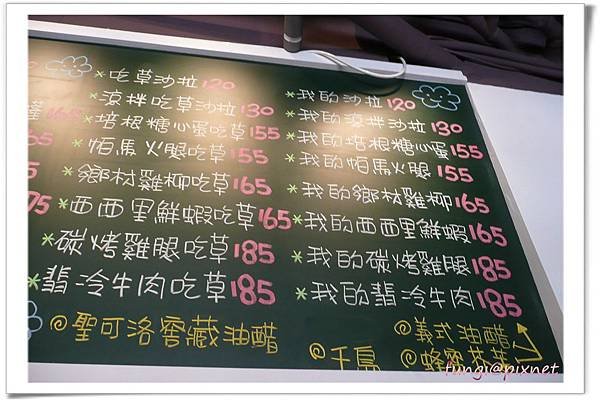 *吃草沙拉 120
*涼拌吃草沙拉 130
*培根糖心蛋吃草 155
*帕馬火腿吃草 155
*鄉村雞柳吃草 165
*西西里鮮蝦吃草 165
*碳烤雞腿吃草 185
*翡冷牛肉吃草 185
*我的沙拉 120
*我的涼拌沙拉 130
*我的培根糖心蛋 155
*我的帕馬火腿 155
*我的鄉村雞柳 165
*我的西西里鮮蝦 165
*我的碳烤雞腿 185
*我的翡冷牛肉 185
@聖可洛窖藏油醋
@千島
@義式油醋
@蜂蜜芥茉
165
fungi@pixnet